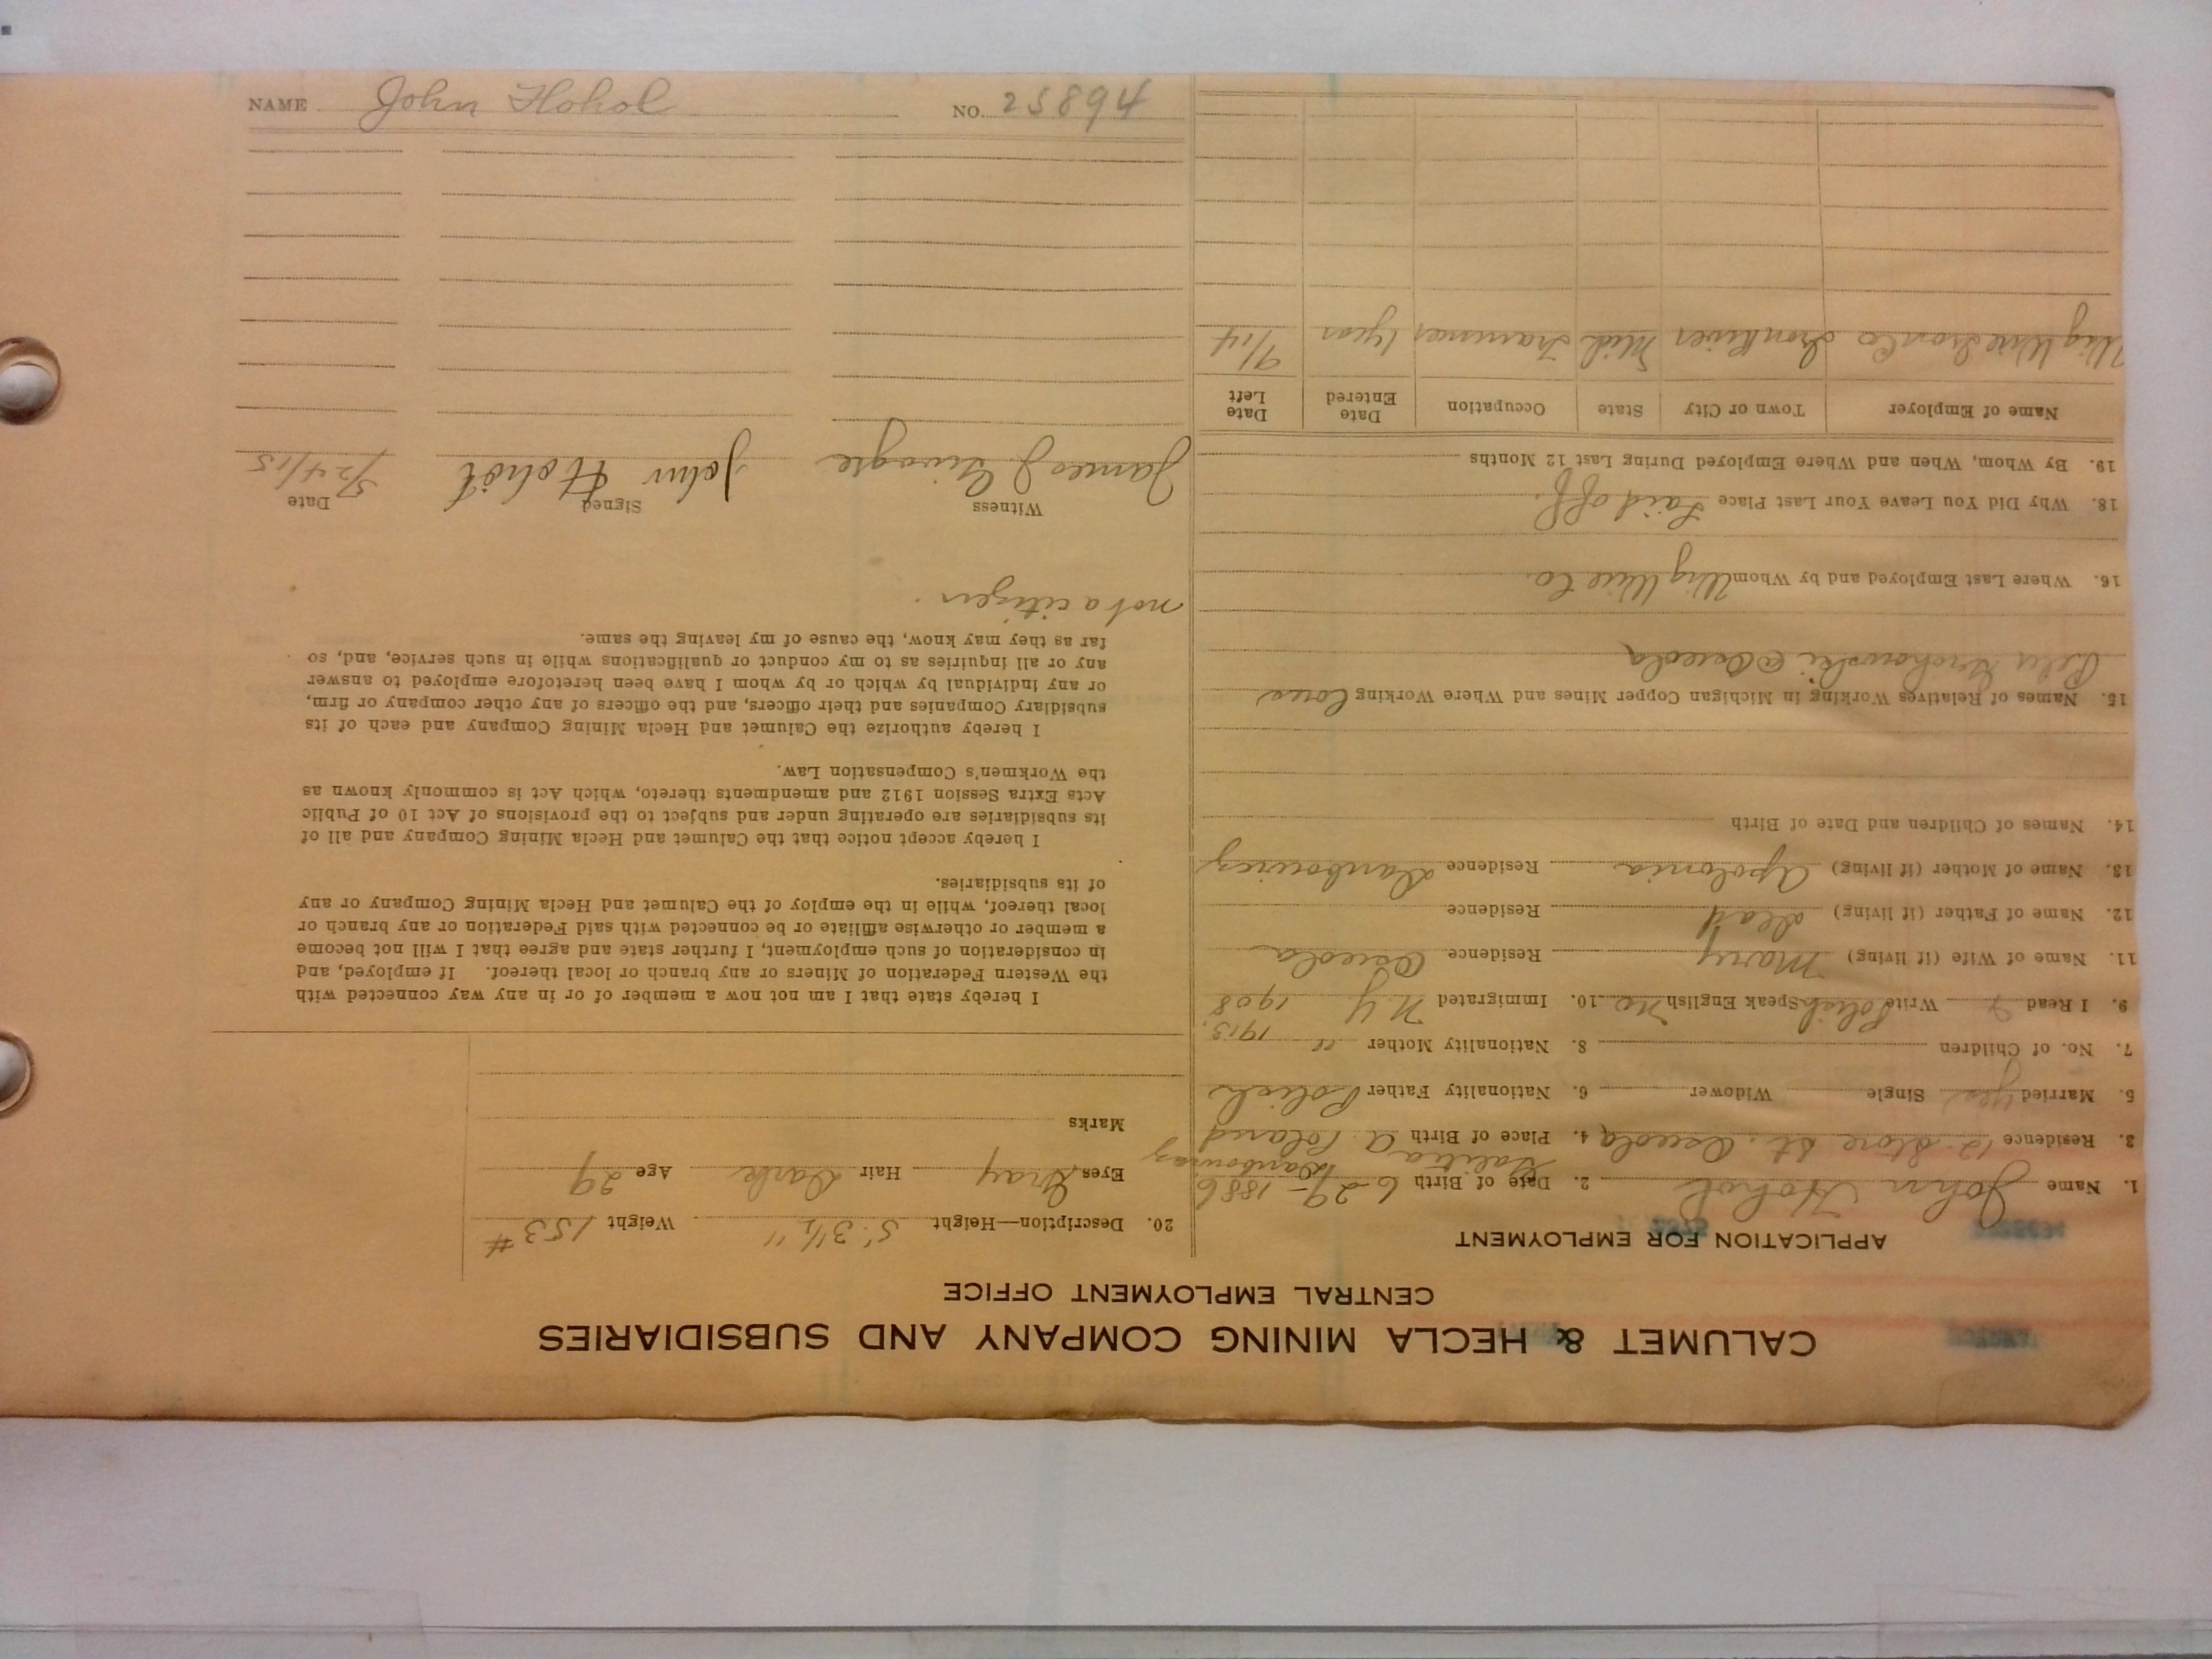 CALUMET & HECLA MINING COMPANY AND SUBSIDIARIES
CENTRAL EMPLOYMENT OFFICE
APPLICATION FOR EMPLOYMENT
1. Name John Hohol 2. Date of Birth 6-29-1886
3. Residence 12 Stone St. Osceola 4. Place of Birth Galicia A. Poland
5. Married yes Single Widower 6. Nationality Father Polish
7. No. of Children 8. Nationality Mother "
9. I Read & Write Polish Speak English no 10. Immigrated N.Y. 1913, 1908
11. Name of Wife (if living) Mary Residence Osceola
12. Name of Father (if living) dead Residence
13. Name of Mother (if living) Apolonia Residence
14. Names of Children and Date of Birth
15. Names of Relatives Working in Michigan Copper Mines and Where Working
@ Osceola
16. Where Last Employed and by Whom Co.
18. Why Did You Leave Your Last Place Laid off.
19. By Whom, When and Where Employed During Last 12 Months
Name of Employer Town or City State Occupation Date Entered Date Left
Iron Co Iron River Mich Trammer 1 year 9/14
20. Description—Height 5' 3 1/2" Weight 153 #
Eyes Gray Hair Dark Age 29
Marks
I hereby state that I am not now a member of or in any way connected with
the Western Federation of Miners or any branch or local thereof. If employed, and
in consideration of such employment, I further state and agree that I will not become
a member or otherwise affiliate or be connected with said Federation or any branch or
local thereof, while in the employ of the Calumet and Hecla Mining Company or any
of its subsidiaries.
I hereby accept notice that the Calumet and Hecla Mining Company and all of
its subsidiaries are operating under and subject to the provisions of Act 10 of Public
Acts Extra Session 1912 and amendments thereto, which Act is commonly known as
the Workmen's Compensation Law.
I hereby authorize the Calumet and Hecla Mining Company and each of its
subsidiary Companies and their officers, and the officers of any other company or firm,
or any individual by which or by whom I have been heretofore employed to answer
any or all inquiries as to my conduct or qualifications while in such service, and, so
far as they may know, the cause of my leaving the same.
not a citizen.
Witness Signed Date
James J John Hohol 5/24/15
NAME John Hohol NO. 25894